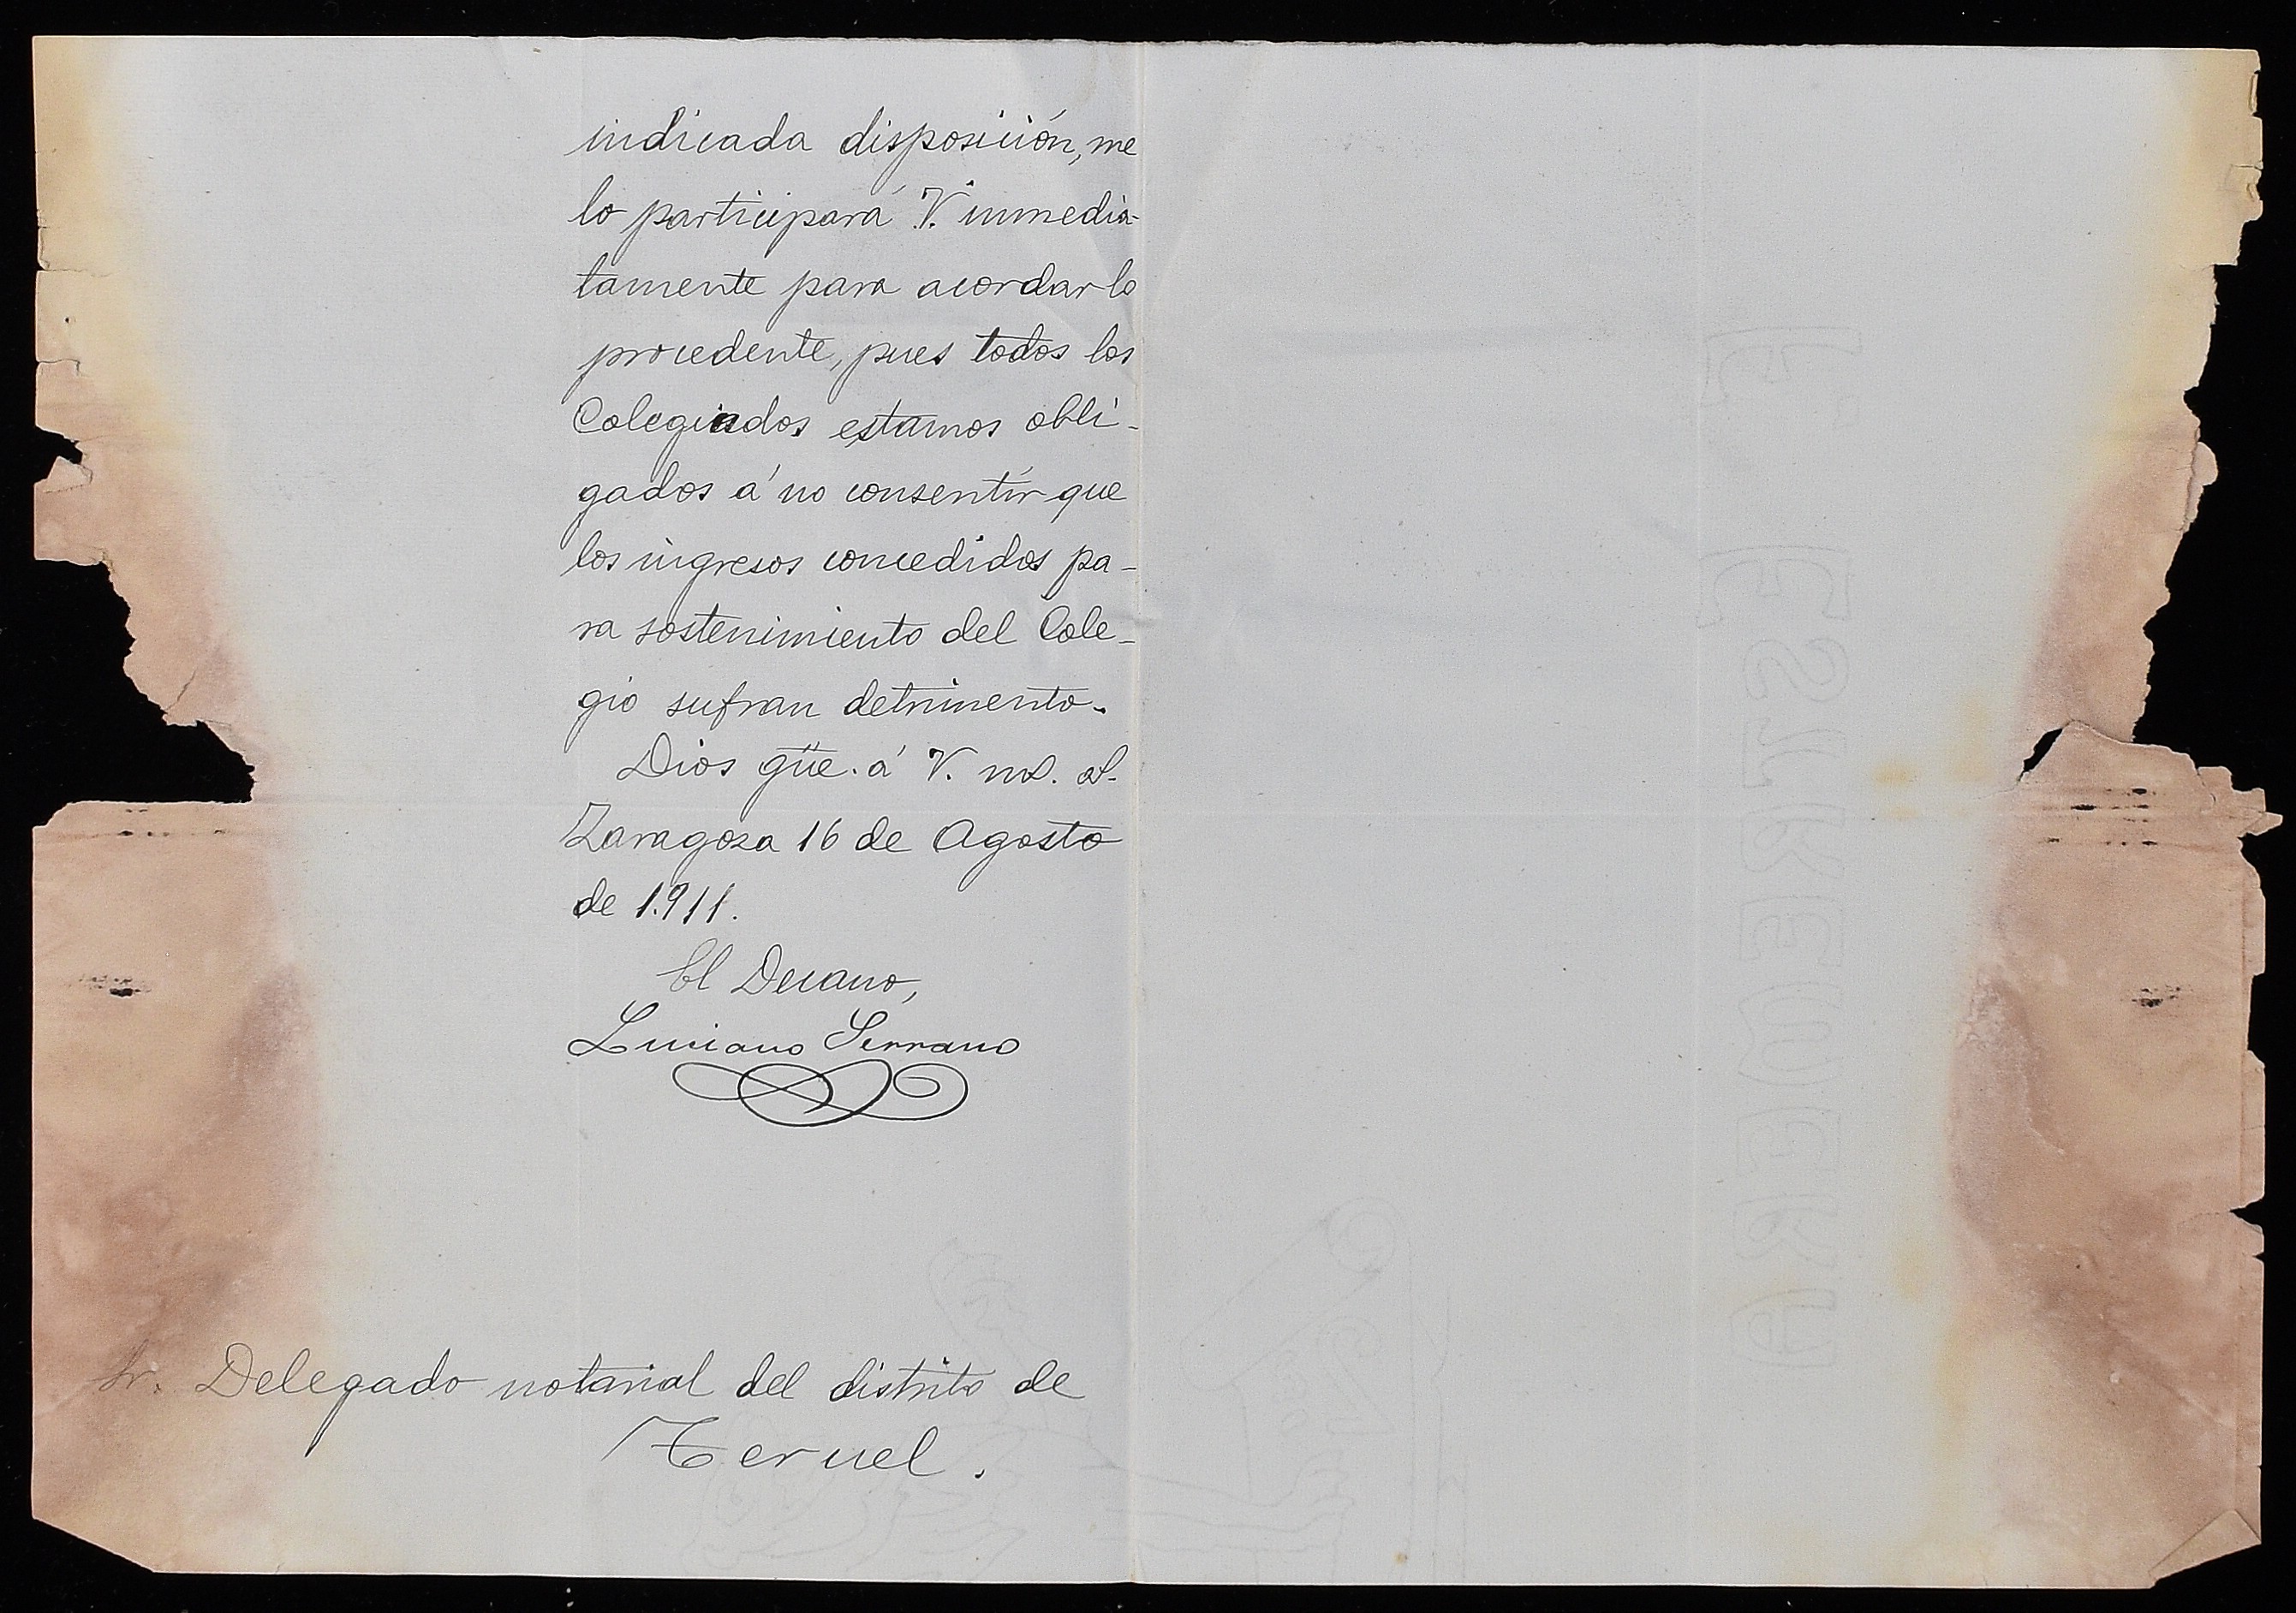 indicada disposición, me
lo participará V. inmedia-
tamente para acordar lo
procedente, pues todos los
Colegiados estamos obli-
gados á no consentir que
los ingresos concedidos pa-
ra sostenimiento del Cole-
gio sufran detrimento.
Dios güe. á V. ms. as.
Zaragoza 16 de Agosto
de 1.911.
El Decano,
Luciano Serrano
Sr. Delegado notarial del distrito de
Teruel.